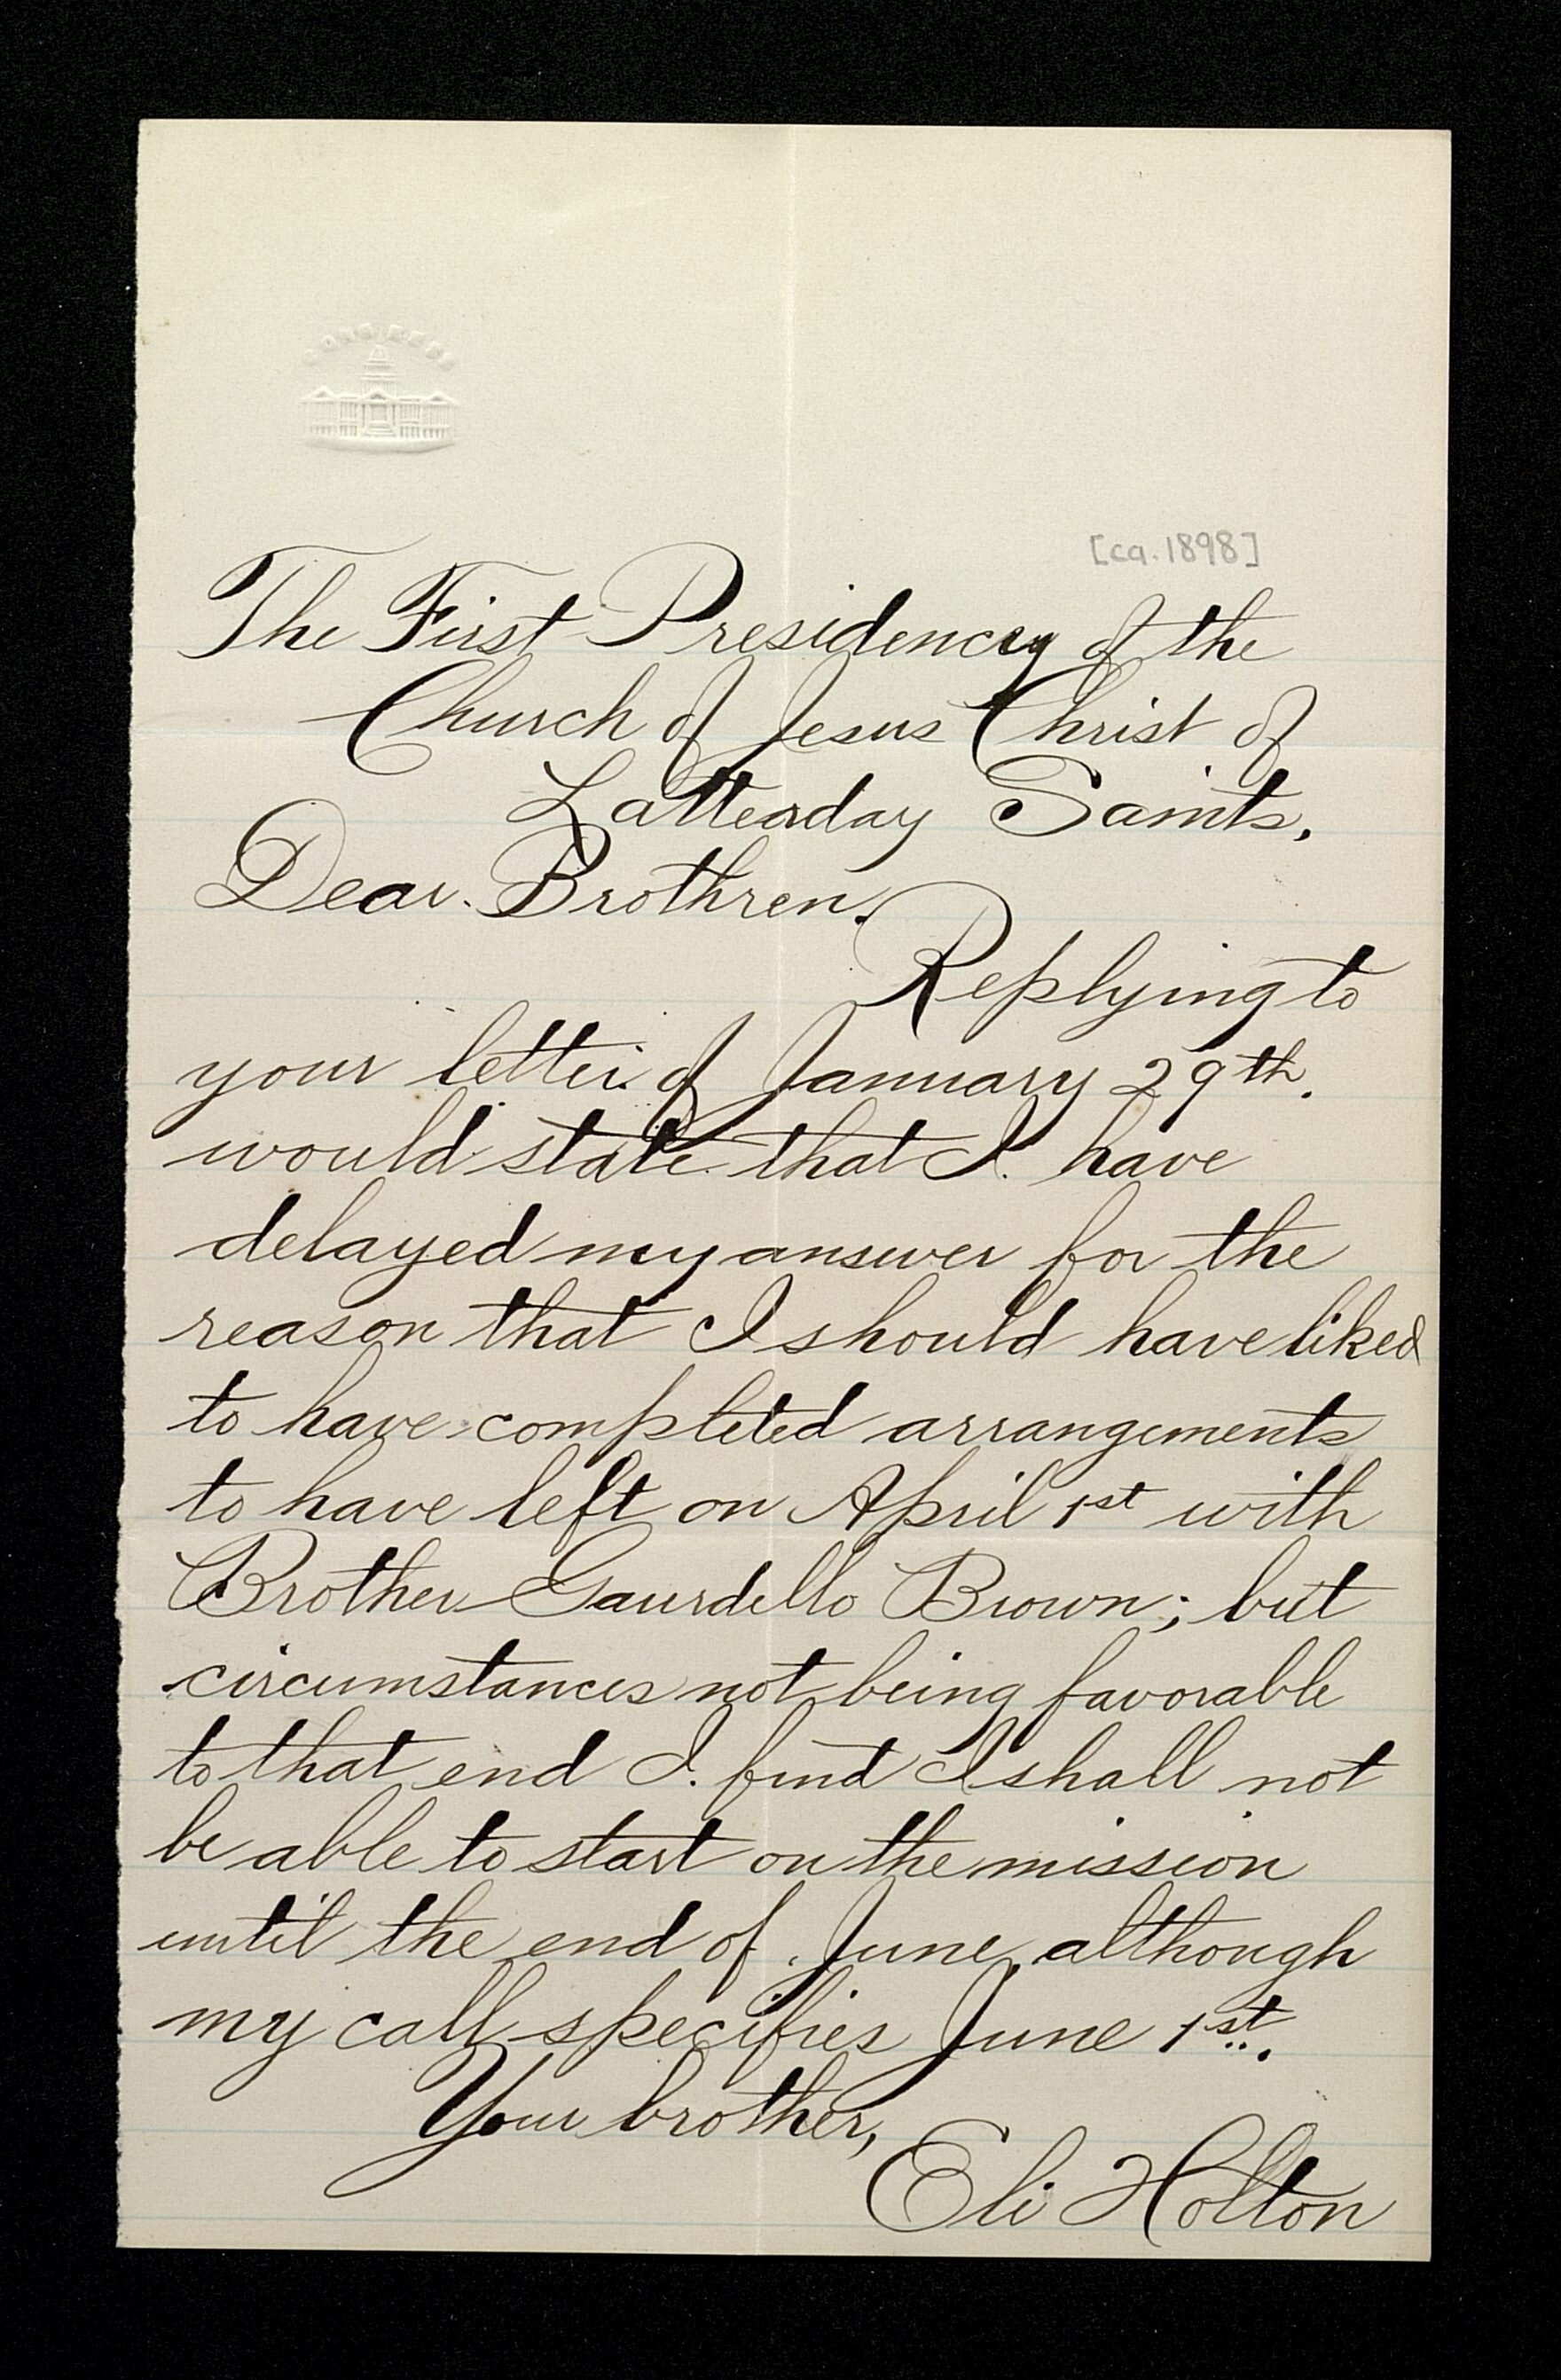 CONGRESS
[ca. 1898]
The First Presidency of the
Church of Jesus Christ of
Latterday Saints,
Dear. Brothren.
Replying to
your letter of January 29th.
would state that I. have
delayed my answer for the
reason that I should have liked
to have completed arrangements
to have left on April 1st with
Brother Gaurdello Brown; but
circumstances not being favorable
to that end I. find I shall not
be able to start on the mission
until the end of June, although
my call specifies June 1st.
Your brother,
Eli Holton